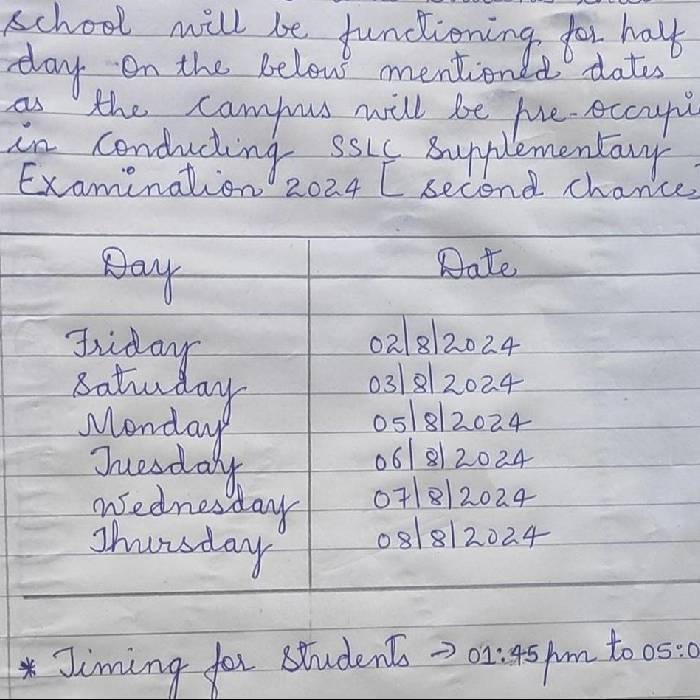 school will be functioning for half
day on the below mentioned dates
as the campus will be pre-occupi
in conducting SSLC Supplementary
Examination 2024 [ second chance
Day Date
Friday 02/8/2024
Saturday 03/8/2024
Monday 05/8/2024
Tuesday 06/8/2024
Wednesday 07/8/2024
Thursday 08/8/2024
* Timing for students → 01:45 pm to 05:0